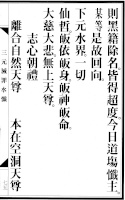 則黑籍除名皆得超度今日道塲懺主
某等是故回向
下元水界一切
仙哲皈依皈身皈神皈命
大慈大悲無上天尊
志心朝禮
離合自然天尊　本在空洞天尊
三元滅罪水懺